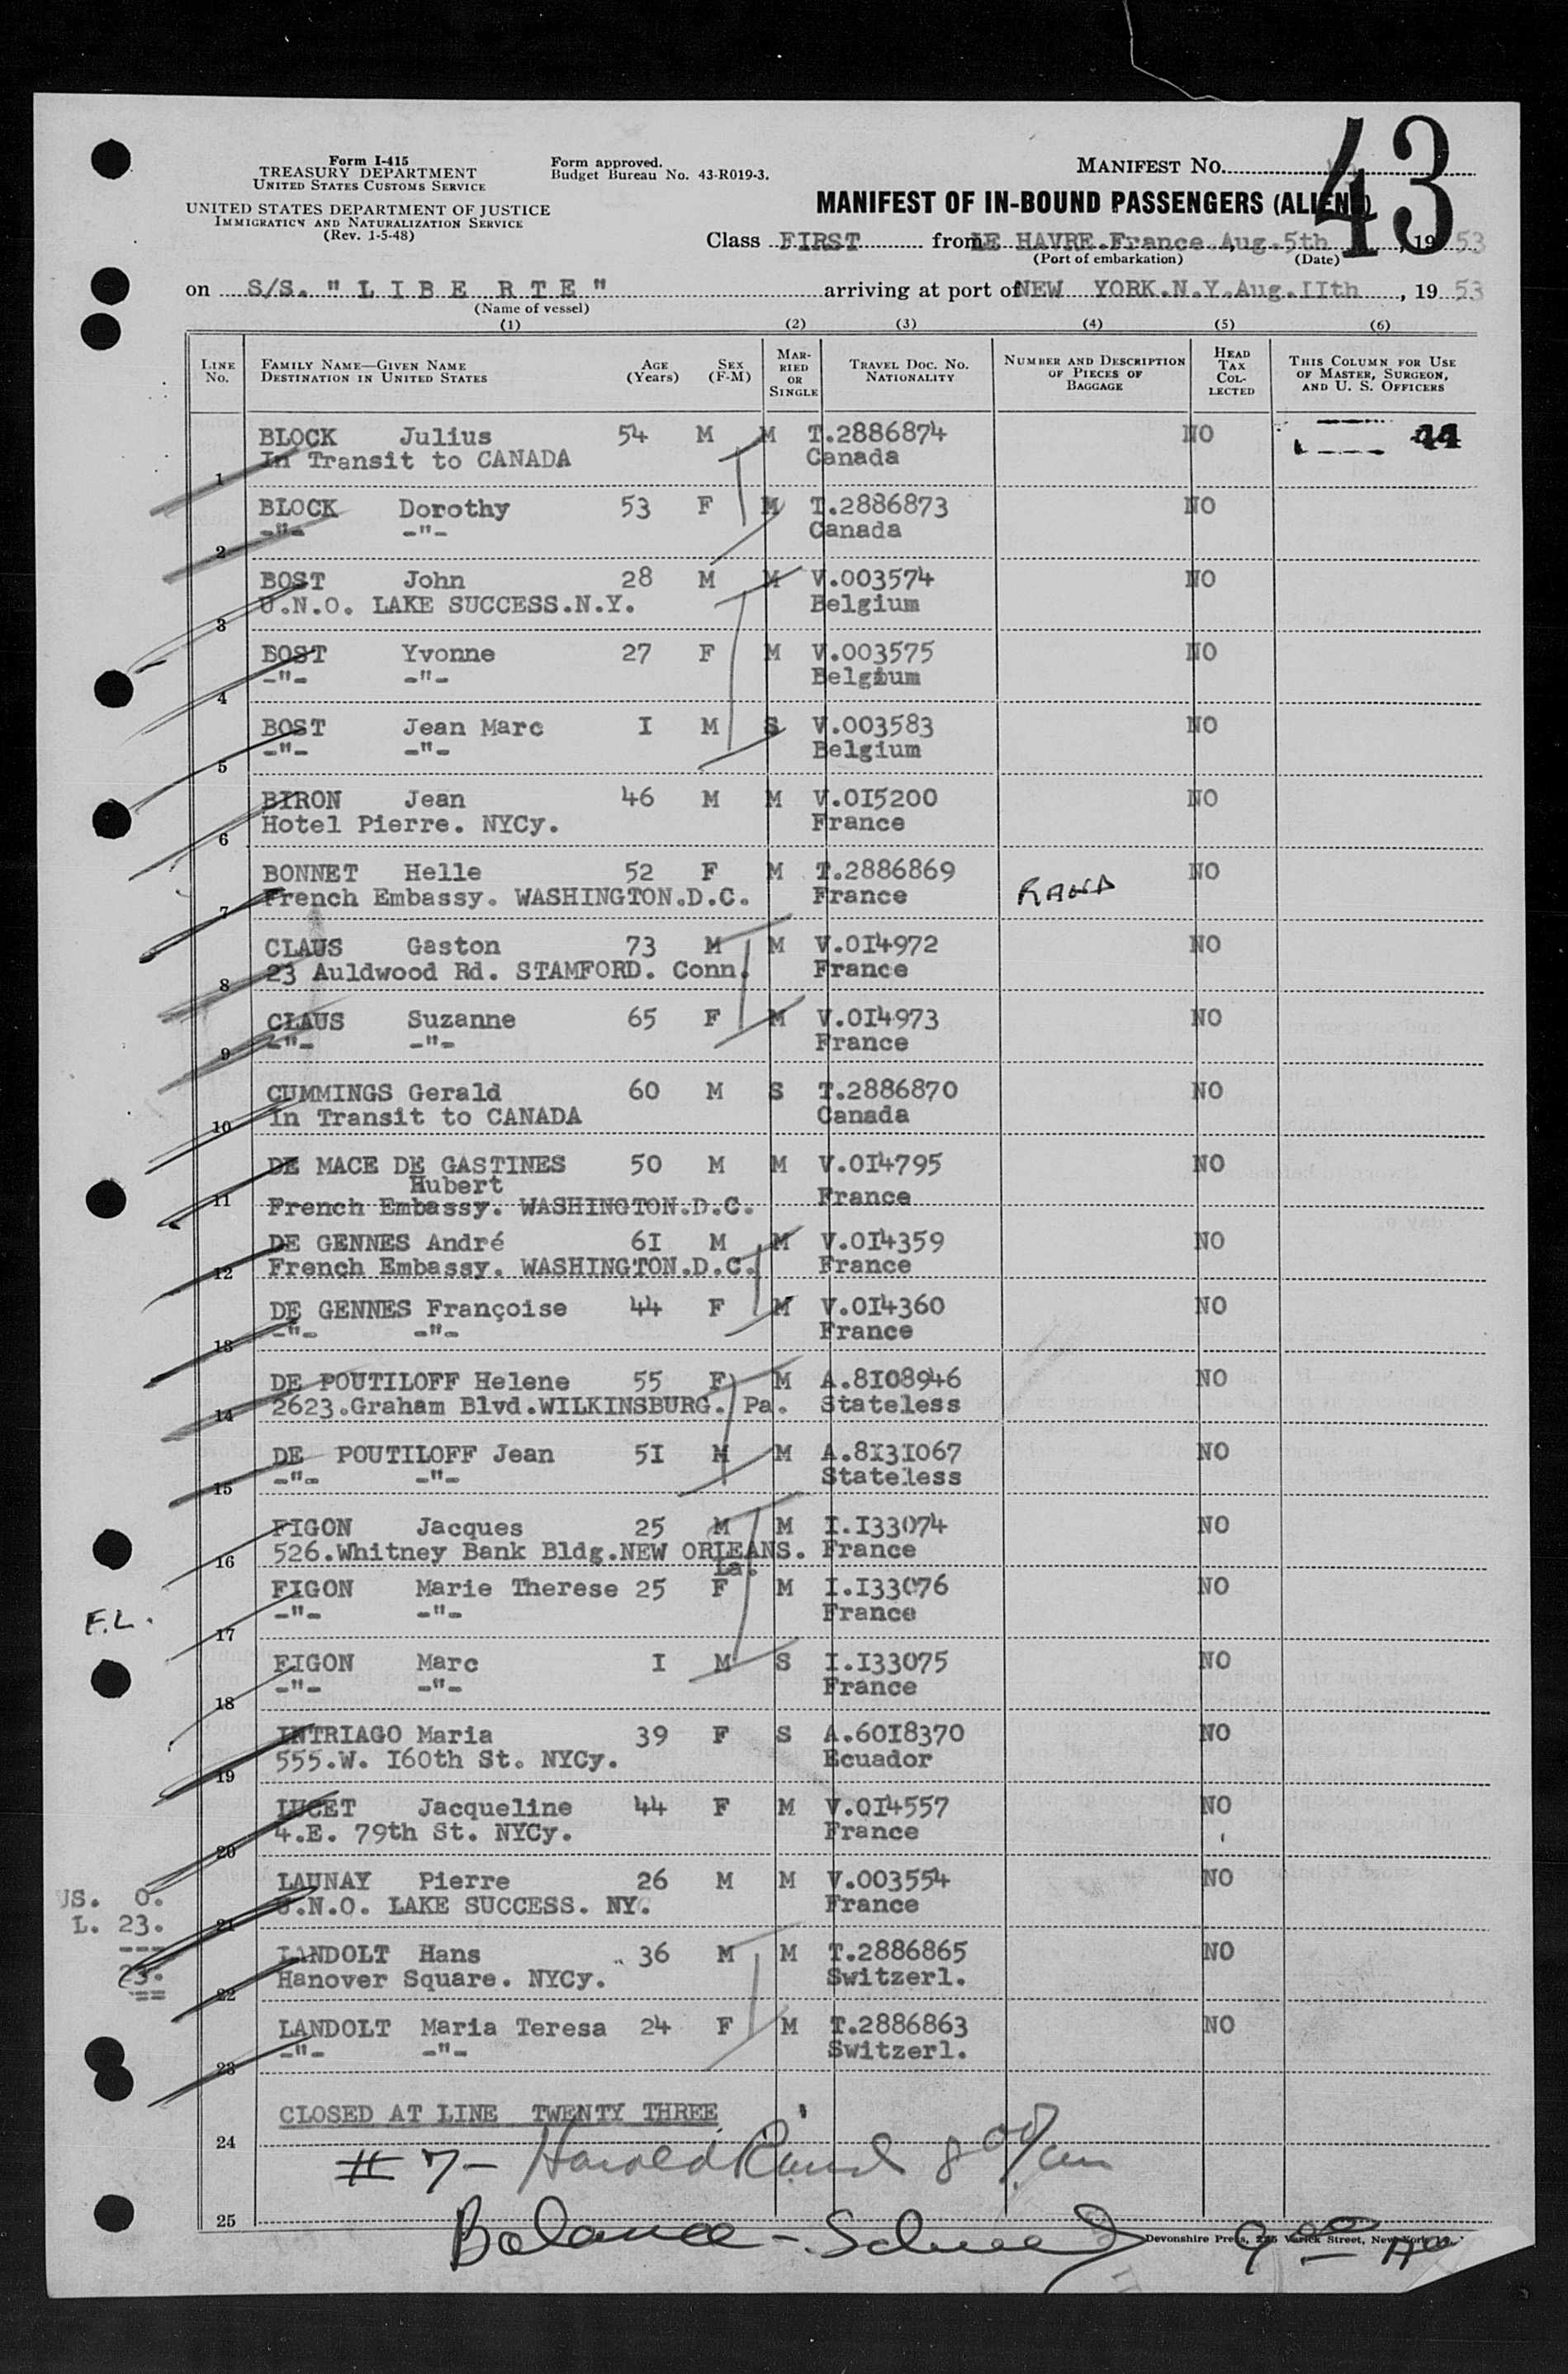 43
Form I-415
TREASURY DEPARTMENT
UNITED STATES CUSTOMS SERVICE
UNITED STATES DEPARTMENT OF JUSTICE
IMMIGRATION AND NATURALIZATION SERVICE
(Rev. 1-5-48)
Form approved.
Budget Bureau No. 43-R019-3.
MANIFEST NO.
MANIFEST OF IN-BOUND PASSENGERS (ALIENS)
Class FIRST from LE HAVRE.France.Aug.5th, 1953
(Port of embarkation) (Date)
on S/S. "L I B E RTE" arriving at port of NEW YORK.N.Y.Aug.IIth, 19 53
(Name of vessel)
(1) (2) (3) (4) (5) (6)
LINE NO. FAMILY NAME—GIVEN NAME DESTINATION IN UNITED STATES AGE (YEARS) SEX (F-M) MARRIED OR SINGLE TRAVEL DOC. NO. NATIONALITY NUMBER AND DESCRIPTION OF PIECES OF BAGGAGE HEAD TAX COLLECTED THIS COLUMN FOR USE OF MASTER, SURGEON, AND U. S. OFFICERS
BLOCK Julius 54 M M T.2886874 NO
1 In Transit to CANADA Canada
BLOCK Dorothy 53 F M T.2886873 NO
2 -"- -"- Canada
BOST John 28 M M V.003574 NO
3 U.N.O. LAKE SUCCESS.N.Y. Belgium
BOST Yvonne 27 F M V.003575 NO
4 -"- -"- Belgium
BOST Jean Marc I M S V.003583 NO
5 -"- -"- Belgium
BIRON Jean 46 M M V.0I5200 NO
6 Hotel Pierre. NYCy. France
BONNET Helle 52 F M T.2886869 NO
7 French Embassy. WASHINGTON.D.C. France
CLAUS Gaston 73 M M V.0I4972 NO
8 23 Auldwood Rd. STAMFORD. Conn. France
CLAUS Suzanne 65 F M V.0I4973 NO
9 -"- -"- France
CUMMINGS Gerald 60 M S T.2886870 NO
10 In Transit to CANADA Canada
DE MACE DE GASTINES 50 M M V.0I4795 NO
Hubert
11 French Embassy. WASHINGTON.D.C. France
DE GENNES André 6I M M V.0I4359 NO
12 French Embassy. WASHINGTON.D.C. France
DE GENNES Françoise 44 F M V.0I4360 NO
13 -"- -"- France
DE POUTILOFF Helene 55 F M A.8I08946 NO
14 2623.Graham Blvd.WILKINSBURG. Pa. Stateless
DE POUTILOFF Jean 5I M M A.8I3I067 NO
15 -"- -"- Stateless
FIGON Jacques 25 M M I.I33074 NO
16 526.Whitney Bank Bldg.NEW ORLEANS. France
La.
FIGON Marie Therese 25 F M I.I33076 NO
F.L.
17 -"- -"- France
FIGON Marc I M S I.I33075 NO
18 -"- -"- France
INTRIAGO Maria 39 F S A.60I8370 NO
19 555.W. I60th St. NYCy. Ecuador
LUCET Jacqueline 44 F M V.0I4557 NO
20 4.E. 79th St. NYCy. France
LAUNAY Pierre 26 M M V.003554 NO
US. 0.
21 U.N.O. LAKE SUCCESS. NYC. France
L. 23.
LANDOLT Hans 36 M M T.2886865 NO
23.
22 Hanover Square. NYCy. Switzerl.
LANDOLT Maria Teresa 24 F M T.2886863 NO
23 -"- -"- Switzerl.
CLOSED AT LINE TWENTY THREE
24
# 7 – Harold
25
Balance –
Devonshire Press, Varick Street, New York